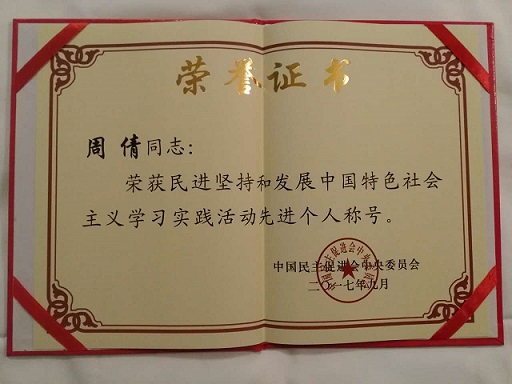 荣誉证书
周倩同志：
荣获民进坚持和发展中国特色社会
主义学习实践活动先进个人称号。
中国民主促进会中央委员会
二〇一七年九月